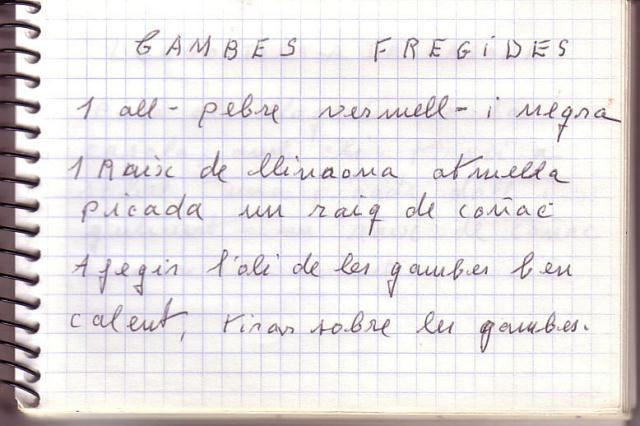 GAMBES FREGIDES
1 all - pebre vermell - i negra
1 Raix de llimona atmella
picada un raig de coñac
Afegir l'oli de les gambes ben
calent, tirar sobre les gambes.